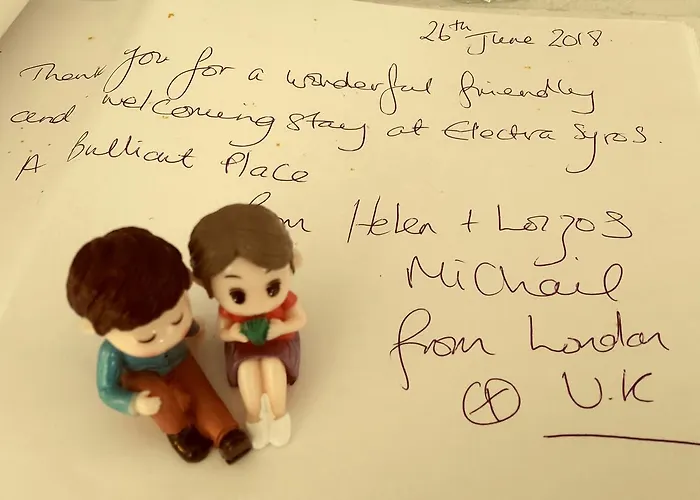 26th June 2018.
Thank you for a wonderful friendly
and welcoming stay at Electra Syros.
A Brilliant Place
from Helen + Lorzos
Michail
from London
U.K